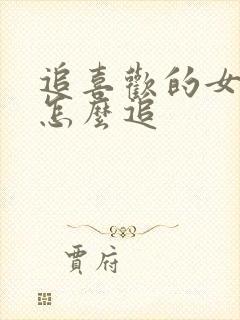 追喜歡的女
怎麼追
賈府